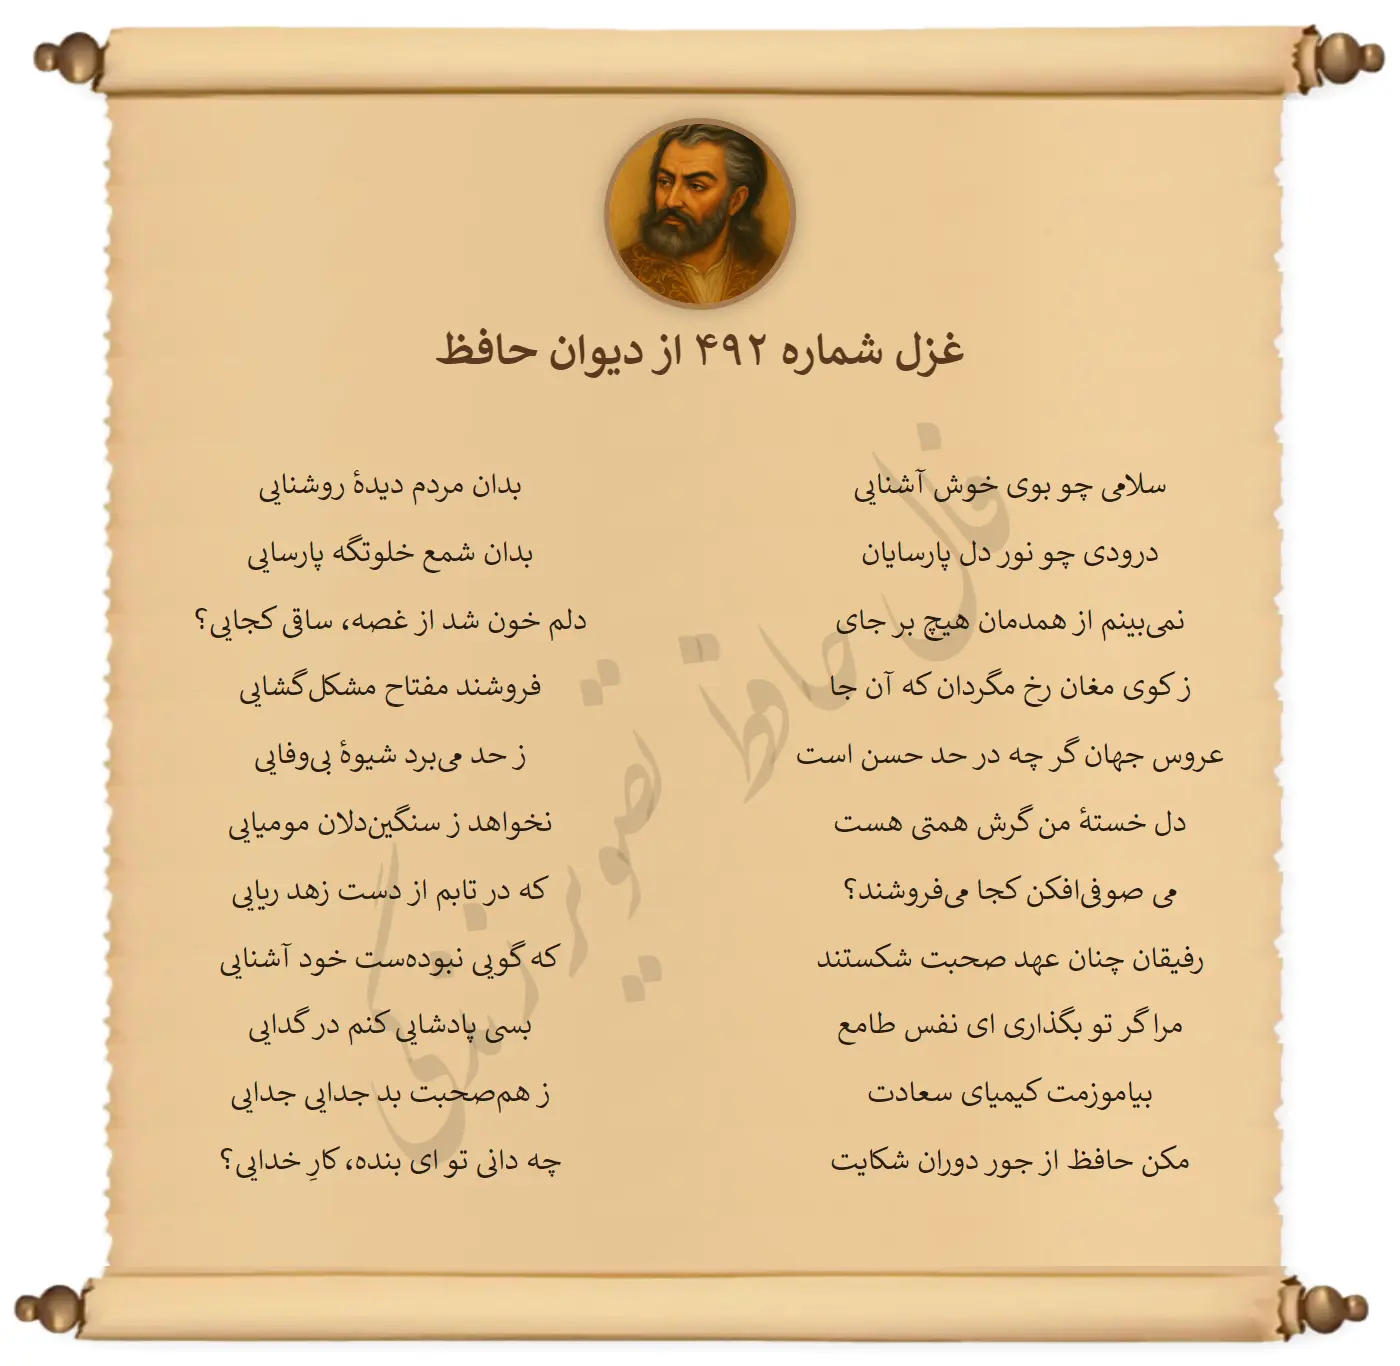 غزل شماره ۴۹۲ از دیوان حافظ
سلامی چو بوی خوش آشنایی بدان مردم دیدهٔ روشنایی
درودی چو نور دل پارسایان بدان شمع خلوتگه پارسایی
نمی‌بینم از همدمان هیچ بر جای دلم خون شد از غصه، ساقی کجایی؟
ز کوی مغان رخ مگردان که آن جا فروشند مفتاح مشکل‌گشایی
عروس جهان گر چه در حد حسن است ز حد می‌برد شیوهٔ بی‌وفایی
دل خستهٔ من گرش همتی هست نخواهد ز سنگین‌دلان مومیایی
می صوفی‌افکن کجا می‌فروشند؟ که در تابم از دست زهد ریایی
رفیقان چنان عهد صحبت شکستند که گویی نبوده‌ست خود آشنایی
مرا گر تو بگذاری ای نفس طامع بسی پادشایی کنم در گدایی
بیاموزمت کیمیای سعادت ز هم‌صحبت بد جدایی جدایی
مکن حافظ از جور دوران شکایت چه دانی تو ای بنده، کارِ خدایی؟
فال حافظ تصویر زندگی